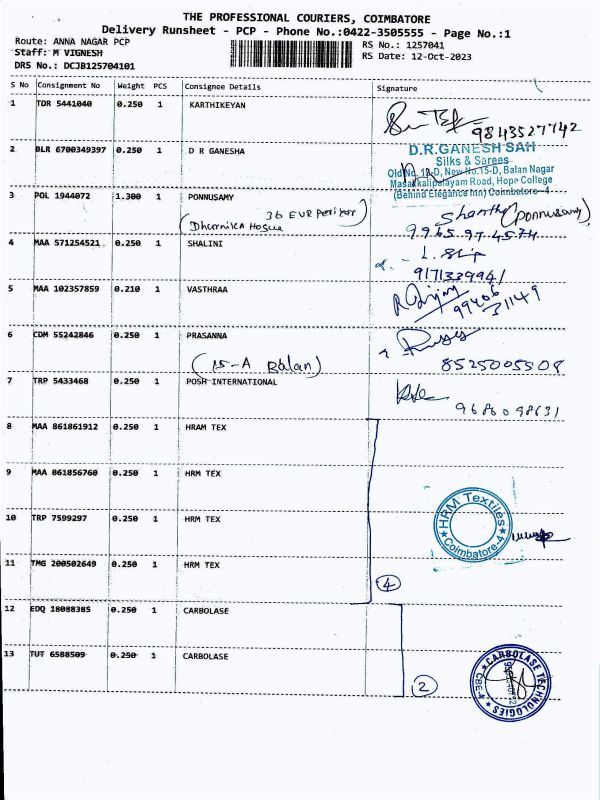 THE PROFESSIONAL COURIERS, COIMBATORE
Delivery Runsheet - PCP - Phone No.:0422-3505555 - Page No.:1
Route: ANNA NAGAR PCP
Staff: M VIGNESH
DRS No.: DCJB125704101
RS No.: 1257041
RS Date: 12-Oct-2023
S No Consignment No Weight PCS Consignee Details Signature
1 TOR 5441040 0.250 1 KARTHIKEYAN
9843527742
2 BLR 6700349397 0.250 1 D R GANESHA
D.R.GANESH SAH
Silks & Sarees
Old No. 11-D, New No.15-D, Balan Nagar
Masakkalipalayam Road, Hope College
(Behind Elegance Inn) Coimbatore-4
3 POL 1944072 1.300 1 PONNUSAMY
36 EVR Periyar
(Dharnika House)
Shanthi (Ponnusamy)
9965974574
4 MAA 571254521 0.250 1 SHALINI
9171339941
5 MAA 102357859 0.210 1 VASTHRAA
99406
31149
6 CDM 55242846 0.250 1 PRASANNA
(15-A Balan)
8525005508
7 TRP 5433468 0.250 1 POSH INTERNATIONAL
9686098631
8 MAA 861861912 0.250 1 HRAM TEX
9 MAA 861856760 0.250 1 HRM TEX
10 TRP 7599297 0.250 1 HRM TEX
HRM Textiles
Coimbatore-4
11 TMG 200502649 0.250 1 HRM TEX
4
12 EDQ 18088385 0.250 1 CARBOLASE
13 TUT 6588509 0.250 1 CARBOLASE
2
CARBOLASE TECHNOLOGIES
CBE-4